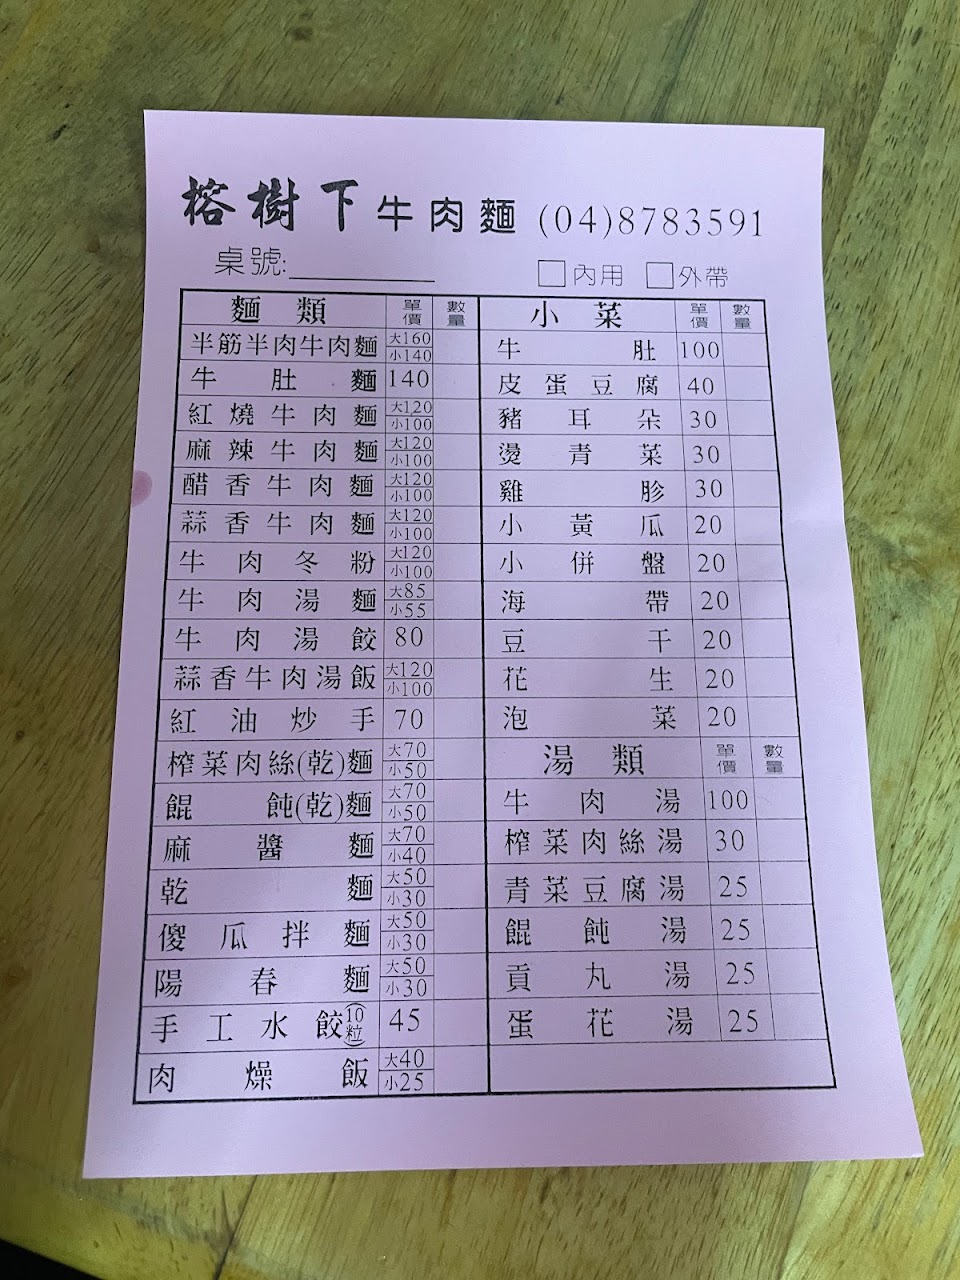 榕樹下牛肉麵 (04)8783591
桌號:
□內用 □外帶
麵類 單價 數量
半筋半肉牛肉麵 大160 小140
牛肚麵 140
紅燒牛肉麵 大120 小100
麻辣牛肉麵 大120 小100
醋香牛肉麵 大120 小100
蒜香牛肉麵 大120 小100
牛肉冬粉 大120 小100
牛肉湯麵 大85 小55
牛肉湯餃 80
蒜香牛肉湯飯 大120 小100
紅油炒手 70
榨菜肉絲(乾)麵 大70 小50
餛飩(乾)麵 大70 小50
麻醬麵 大70 小40
乾麵 大50 小30
傻瓜拌麵 大50 小30
陽春麵 大50 小30
手工水餃(10粒) 45
肉燥飯 大40 小25
小菜 單價 數量
牛肚 100
皮蛋豆腐 40
豬耳朵 30
燙青菜 30
雞胗 30
小黃瓜 20
小併盤 20
海帶 20
豆干 20
花生 20
泡菜 20
湯類 單價 數量
牛肉湯 100
榨菜肉絲湯 30
青菜豆腐湯 25
餛飩湯 25
貢丸湯 25
蛋花湯 25